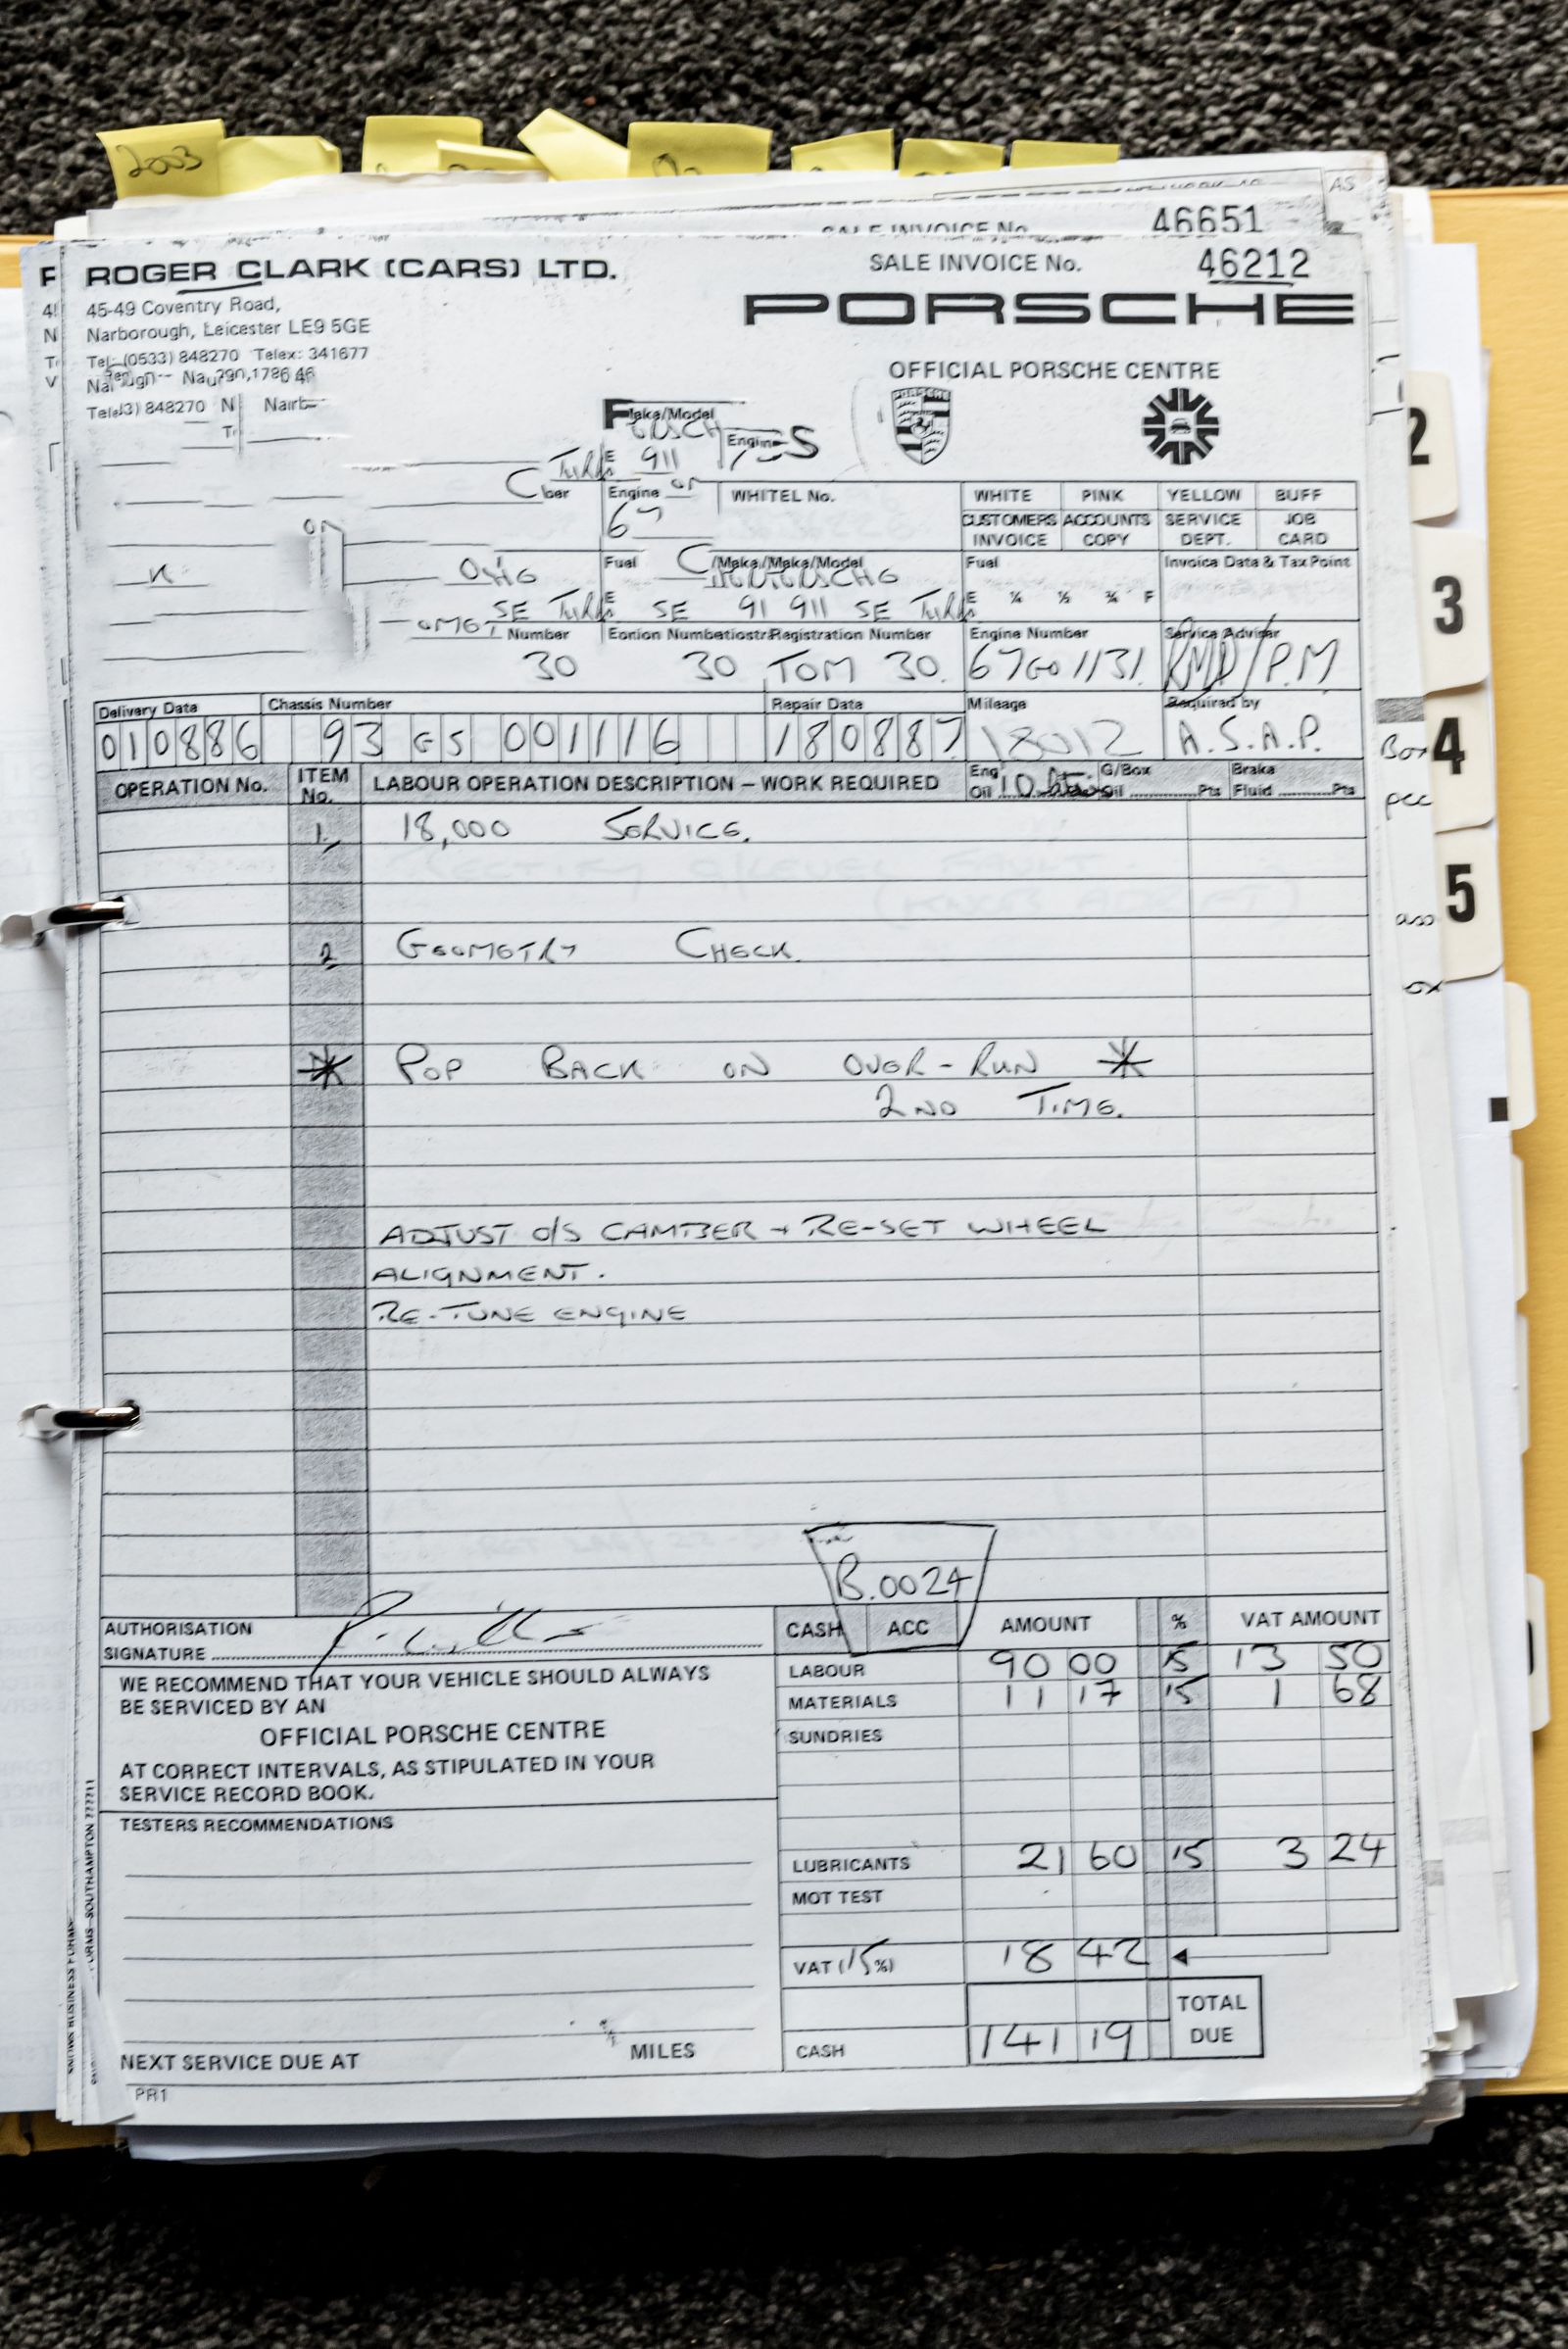 2003
46651
SALE INVOICE No.
ROGER CLARK (CARS) LTD.
SALE INVOICE No. 46212
45-49 Coventry Road,
Narborough, Leicester LE9 5GE
Tel: (0533) 848270 Telex: 341677
PORSCHE
OFFICIAL PORSCHE CENTRE
848270
Make/Model
911
Engine
WHITEL No.
WHITE PINK YELLOW BUFF
CUSTOMERS INVOICE ACCOUNTS COPY SERVICE DEPT. JOB CARD
Fuel
Fuel
Invoice Data & Tax Point
SE 91 911 SE
E ¼ ½ ¾ F
Number
Registration Number
Engine Number
Service Adviser
30 30 TOM 30. 67G01131 /P.M
Delivery Data
Chassis Number
Repair Data
Mileage
Required by
010886 93 GS 001116 180887 18012 A.S.A.P.
OPERATION No. ITEM No. LABOUR OPERATION DESCRIPTION – WORK REQUIRED
Eng Oil 10 G/Box Oil Pts Brake Fluid Pts
1. 18,000 SERVICE.
2 GEOMETRY CHECK.
* POP BACK ON OVER-RUN *
2ND TIME.
ADJUST O/S CAMBER + RE-SET WHEEL
ALIGNMENT.
RE-TUNE ENGINE
B.0024
AUTHORISATION
SIGNATURE
CASH ACC AMOUNT % VAT AMOUNT
LABOUR 90 00 15 13 50
MATERIALS 11 17 15 1 68
SUNDRIES
WE RECOMMEND THAT YOUR VEHICLE SHOULD ALWAYS
BE SERVICED BY AN
OFFICIAL PORSCHE CENTRE
AT CORRECT INTERVALS, AS STIPULATED IN YOUR
SERVICE RECORD BOOK.
TESTERS RECOMMENDATIONS
LUBRICANTS 21 60 15 3 24
MOT TEST
VAT (15%) 18 42
TOTAL DUE
CASH 141 19
NEXT SERVICE DUE AT MILES
PR1
2
3
4
5